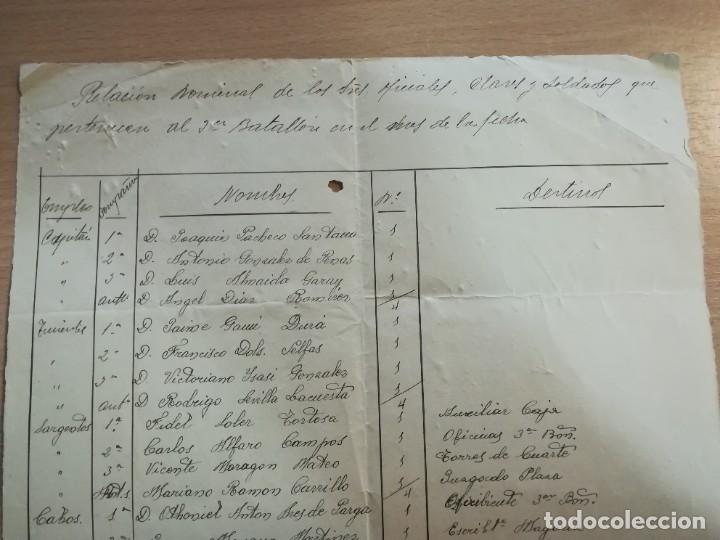 Relación Nominal de los Sres Oficiales, Clases y Soldados que
pertenecen al 3er Batallón en el mes de la fecha
Empleos Compañia Nombres Nº Destinos
Capitán 1ª D. Joaquin Pacheco Santana 1
" 2ª D. Antonio Gonzalez de Penas 1
" 3ª D. Luis Almaida Garay 1
" D. Angel Diaz Ramirez 1
4
Tenientes 1ª D. Jaime Gami Durá 1
" 2ª D. Francisco Dols Selfas 1
" 3ª D. Victoriano Isasi Gonzalez 1
" D. Rodrigo Sevilla Lacuesta 1
4
Sargentos 1ª Fidel Soler Tortosa 1 Auxiliar Caja
" 2ª Carlos Alfaro Campos 1 Oficinas 3er Bon.
" 3ª Vicente Moragon Mateo 1 Torres de Cuarte
" Mariano Ramon Carrillo 1 Juzgado Plaza
4
Cabos. 1ª D. Othoniel Anton Ires de Parga 1 Escribiente 3er Bon.
2ª Martinez 1 Escribte Mayoria
todocoleccion